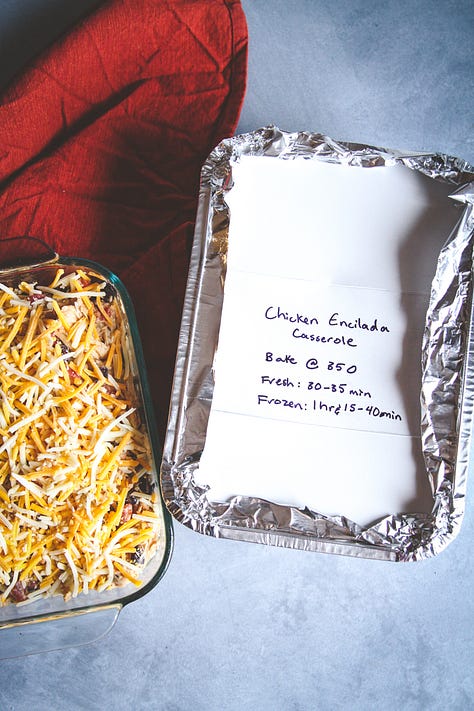 Chicken Encilada
Casserole
Bake @ 350
Fresh: 30-35 min
Frozen: 1 hr & 15-40 min